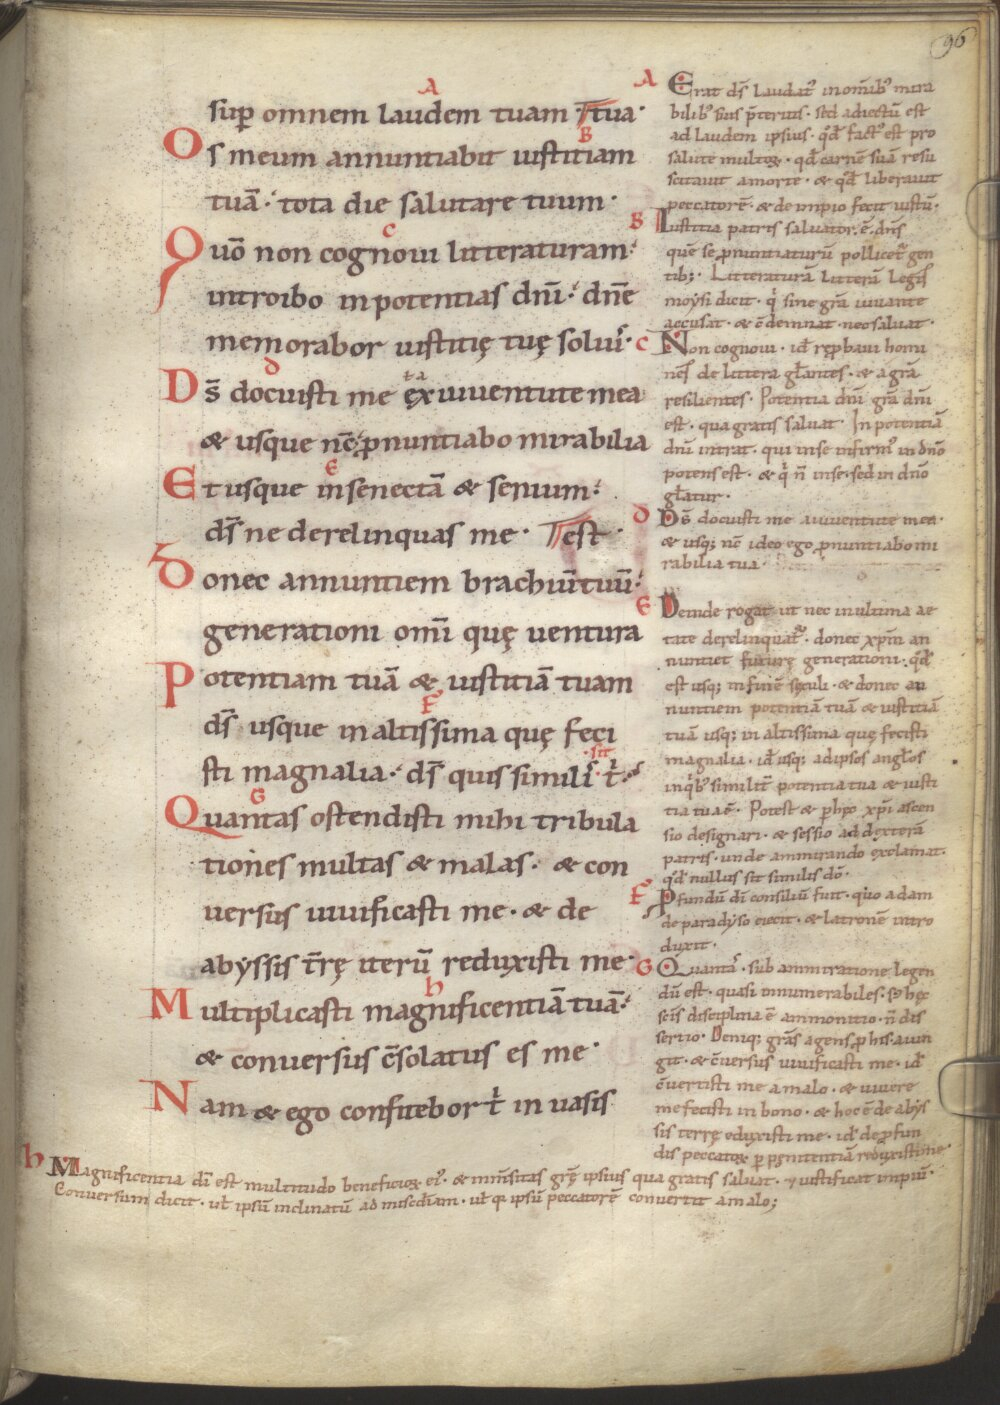 96
A
sup̄ omnem laudem tuam · tua ·
B
Os meum annuntiabit iustitiam
tuā · tota die salutare tuum ·
C
Quō non cognoui litteraturam ·
introibo in potentias dnī · dnē
memorabor iustitię tuę soliuſ ·
D
Ds̄ docuisti me ex iuuentute mea
& usque nc̄ pronuntiabo mirabilia
E
Et usque in senectā & senium ·
ds̄ ne derelinquas me · est ·
Donec annuntiem brachiū tuū ·
generationi omī quę uentura
Potentiam tuā & iustitiā tuam
F
ds̄ usque in altissima quę feci
· sit ·
sti magnalia · ds̄ quis similis t̄ ·
G
Quantas ostendisti mihi tribula
tiones multas & malas · & con
uersus uiuificasti me · & de
abyssis tr̄ę iterū reduxisti me ·
h
Multiplicasti magnificentiā tuā ·
& conuersus c̄solatus es me ·
Nam & ego confitebor t̄ in uasis
A Erat ds̄ laudat᷒ in omīb᷒ mira
bilib᷒ suis p̄teritis · sed adiectū est
ad laudem ipsius · qd̄ fact᷒ est pro
salute multoꝝ · qd̄ carnē suā resu
scitauit a morte · & qd̄ liberauit
peccatorē · & de impio fecit iustū ·
B Iustitia patris saluator · ē · dn̄s
quē se pronuntiaturū pollicet᷒ gen
tib; · Litteraturā litterā legis
moysi dicit · q̄ sine gr̄a iuuante
accusat · & c̄demnat nec saluat ·
C Non cognoui · id̄ reprobaui homi
nes de littera gl̄antes · & a gr̄a
resilientes · Potentia dnī gr̄a dnī
est · qua gratis saluat · In potentiā
dnī intrat · qui in se infirm᷒ in dn̄o
potens est · & q̄ n̄ in se · sed in dn̄o
gl̄atur ·
D Ds̄ docuisti me a iuuentute mea ·
& usq; nc̄ ideo ego pronuntiabo mi
rabilia tua ·
E Deinde rogat ut nec in ultima ae
tate derelinquat᷒ · donec xpm̄ an
nuntiet futurę generationi · qd̄
est usq; in finē sęculi · & donec an
nuntiem potentiā tuā & iustitiā
tuā usq; in altissima quę fecisti
magnalia · id̄ usq; ad ipsos angl̄os
in qb᷒ similit̄ potentia tua & iusti
tia tua ē · Potest & p hoc xpī ascen
sio designari · & sessio ad dexterā
patris · unde ammirando exclamat ·
qd̄ nullus sit similis dō ·
F Pfundū dī consiliū fuit · quo adam
de paradyso eiecit · & latronē intro
duxit ·
G Quantas · sub ammiratione legen
dū est · quasi innumerabiles : sed hęc
scīs disciplina ē ammonitio · n̄ dis
sertio · Deniq; gr̄as agens p his · aiun
git · & c̄uersus uiuificasti me · id̄
c̄uertisti me a malo · & uiuere
me fecisti in bono · & hoc ē de abys
sis terrę eduxisti me · id̄ de profun
dis peccatoꝝ p pęnitentiā reduxisti me ·
h Magnificentia dī est multitudo beneficioꝝ ei᷒ · & inm̄sitas gr̄ę ipsius qua gratis saluat · & iustificat impiū ·
Conuersum dicit · ul̄ ipsū inclinatū ad misc̄diam · ul̄ q ipsū peccatorē conuertit a malo;